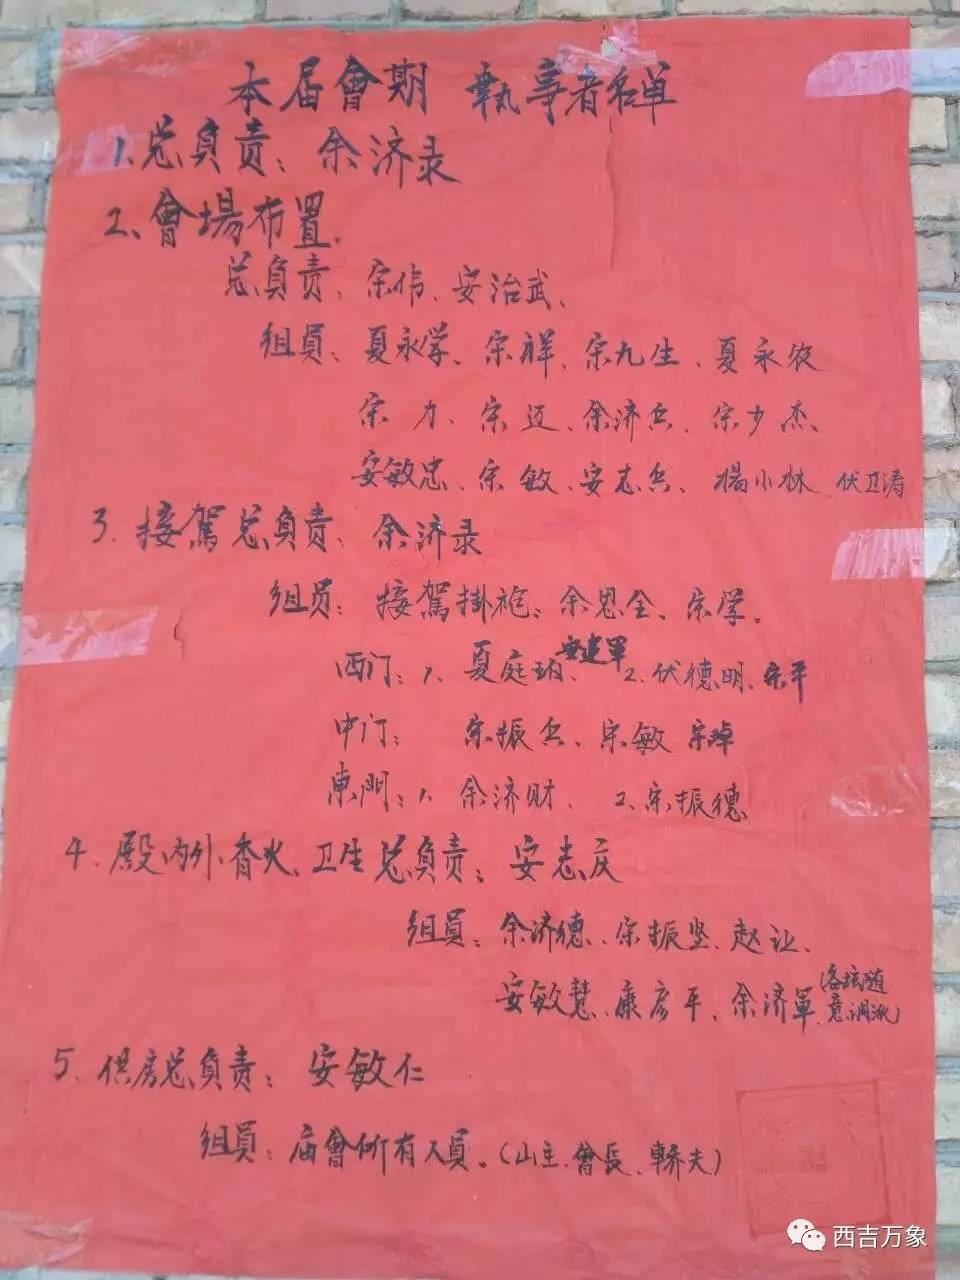 本届會期 執事者名单
1、总负责：余济录
2、會場布置、
总负责、宗伟、安治武、
组員、夏永学、宗祥、宗九生、夏永农
宗力、宗迈、余济兵、宗少杰、
安敏忠、宗敏、安志兵、楊小林、伏卫涛
3、接駕总负责：余济录
组员：接駕掛袍：余恩全、宗学。
西门：1、夏庭 、安建军 2、伏德明、宗平
中门：宗振兵、宗敏 宗
東門：1、余济财、2、宗振德
4、殿内外香火、卫生总负责：安志庆
组員：余济德、宗振坚、赵让、
安敏慧、康彦平、余济軍（各坛随
意调派）
5、供房总负责：安敏仁
组員：庙會所有人員。（山主、會長、轎夫）
西吉万象